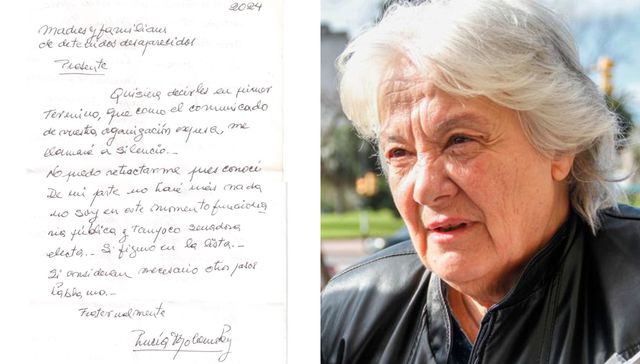 2024
Madres y familiares
de detenidos desaparecidos
Presente
Quisiera decirles en primer
Termino, que como el comunicado
de vuestra organización expresa, me
llamaré a silencio._
No puedo retractarme pues conocí
De mi parte no haré más nada
no soy en este momento funciona
ria pública y tampoco senadora
electa._ Si figuro en la lista._
Si consideran necesario otros pasos
Fraternalmente
Lucía Topolansky